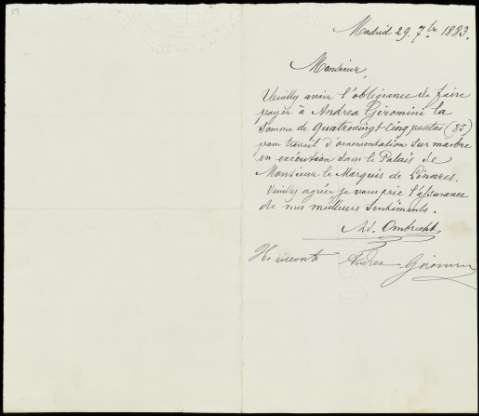 Madrid 29. 7bre 1883.
Monsieur,
Veuillez avoir l'obligeance de faire
payer à Andrea Géromini la
Somme de Quatrevingt-Cinq pesetas (85)
pour travail d'ornementation Sur marbre
en exécution dans le Palais de
Monsieur le Marquis de Linares.
Veuillez agréer je vous prie l'assurance
de mes meilleurs Sentiments.
Ad. Ombrecht
Andrea Géromini